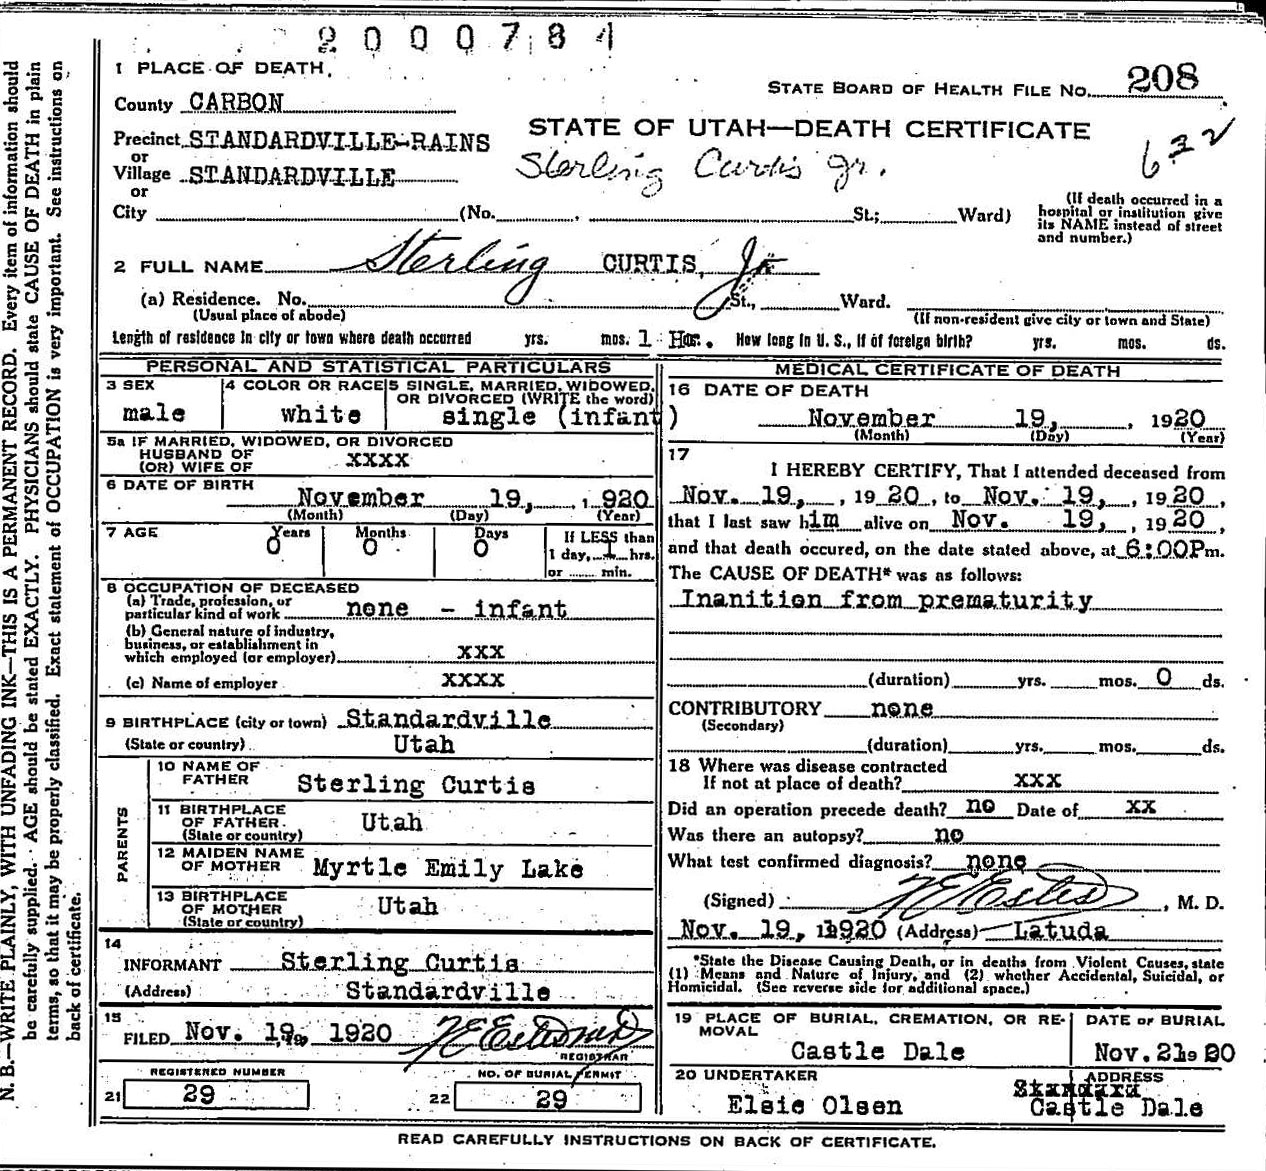 2000784
1 PLACE OF DEATH
STATE BOARD OF HEALTH FILE NO. 208
County CARBON
STATE OF UTAH—DEATH CERTIFICATE
632
Precinct STANDARDVILLE-RAINS
or
Sterling Curtis Jr.
Village STANDARDVILLE
or
City (No. , St.; Ward)
(If death occurred in a
hospital or institution give
its NAME instead of street
and number.)
2 FULL NAME Sterling CURTIS, Jr
(a) Residence. No. St., Ward.
(Usual place of abode)
(If non-resident give city or town and State)
Length of residence in city or town where death occurred yrs. mos. 1 Hor. How long in U. S., if of foreign birth? yrs. mos. ds.
PERSONAL AND STATISTICAL PARTICULARS
3 SEX
male
4 COLOR OR RACE
white
5 SINGLE, MARRIED, WIDOWED,
OR DIVORCED (WRITE the word)
single (infant)
5a IF MARRIED, WIDOWED, OR DIVORCED
HUSBAND OF
(OR) WIFE OF XXXX
6 DATE OF BIRTH
November 19, , 1920
(Month) (Day) (Year)
7 AGE
Years Months Days
0 0 0
If LESS than
1 day, 1 hrs.
or min.
8 OCCUPATION OF DECEASED
(a) Trade, profession, or
particular kind of work none - infant
(b) General nature of industry,
business, or establishment in
which employed (or employer) XXX
(c) Name of employer XXXX
9 BIRTHPLACE (city or town) Standardville
(State or country) Utah
PARENTS
10 NAME OF
FATHER Sterling Curtis
11 BIRTHPLACE
OF FATHER Utah
(State or country)
12 MAIDEN NAME
OF MOTHER Myrtle Emily Lake
13 BIRTHPLACE
OF MOTHER Utah
(State or country)
14
INFORMANT Sterling Curtis
(Address) Standardville
15
FILED Nov. 19, 1920
REGISTRAR
REGISTERED NUMBER
21 29
NO. OF BURIAL PERMIT
22 29
MEDICAL CERTIFICATE OF DEATH
16 DATE OF DEATH
November 19, , 1920
(Month) (Day) (Year)
17
I HEREBY CERTIFY, That I attended deceased from
Nov. 19, , 1920, to Nov. 19, , 1920,
that I last saw him alive on Nov. 19, , 1920,
and that death occured, on the date stated above, at 6:00Pm.
The CAUSE OF DEATH* was as follows:
Inanition from prematurity
(duration) yrs. mos. 0 ds.
CONTRIBUTORY none
(Secondary)
(duration) yrs. mos. ds.
18 Where was disease contracted
If not at place of death? XXX
Did an operation precede death? no Date of XX
Was there an autopsy? no
What test confirmed diagnosis? none
(Signed) , M. D.
Nov. 19, 1920 (Address) Latuda
*State the Disease Causing Death, or in deaths from Violent Causes, state
(1) Means and Nature of Injury, and (2) whether Accidental, Suicidal, or
Homicidal. (See reverse side for additional space.)
19 PLACE OF BURIAL, CREMATION, OR RE-
MOVAL
Castle Dale
DATE OF BURIAL
Nov. 21 1920
20 UNDERTAKER
Elsie Olsen
ADDRESS
Standard
Castle Dale
READ CAREFULLY INSTRUCTIONS ON BACK OF CERTIFICATE.
N. B.—WRITE PLAINLY, WITH UNFADING INK—THIS IS A PERMANENT RECORD. Every item of information should
be carefully supplied. AGE should be stated EXACTLY. PHYSICIANS should state CAUSE OF DEATH in plain
terms, so that it may be properly classified. Exact statement of OCCUPATION is very important. See instructions on
back of certificate.